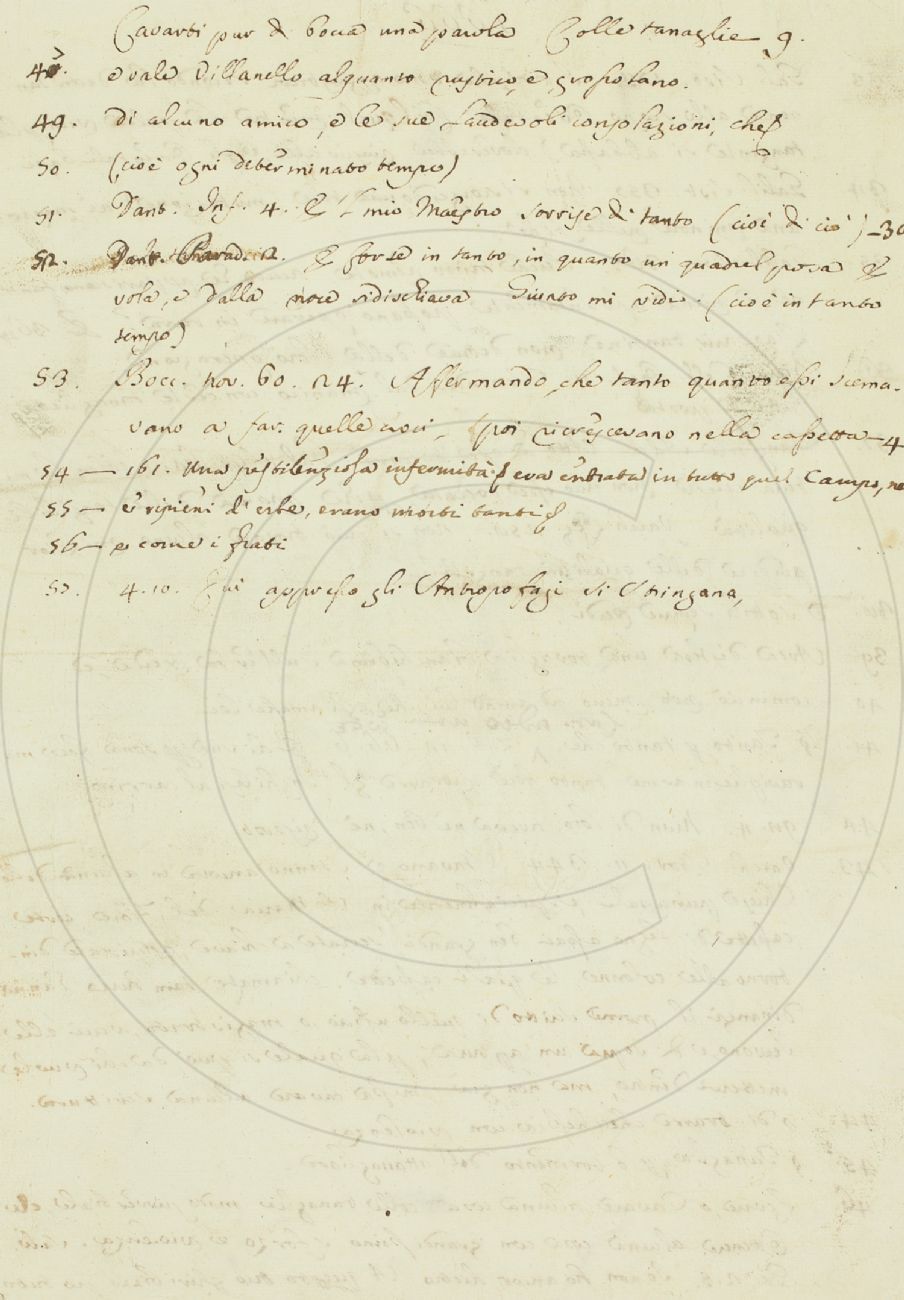 Cavarti pur di boca una parola Colle tanaglie 9.
47. e vale Villanello alquanto rustico, e grossolano.
49. di alcuno amico, e le sue Laudevoli consolazioni, che
50. (cioè ogni determinato tempo)
51. Dant. Inf. 4. E 'l mio Maestro sorrise di tanto (cioè di ciò) -30
52. Dant. Parad. 2. E forse in tanto, in quanto un quadrel posa E
vola, e dalla noce si dischiava Giunto mi vidi. (cioè in tanto
tempo)
53. Bocc. nov. 60. 24. Affermando, che tanto quanto essi scema-
vano a far quelle croci, poi ricrescevano nella cassetta -4
54 - 161. Una pestilenziosa infermità era entrata in tutto quel Campo, ne
55 - e ripieni d'erbe, erano morti tanti
56 - e come i frati
57. 4. 10. Qui appresso gli Antropofagi si Stringana,